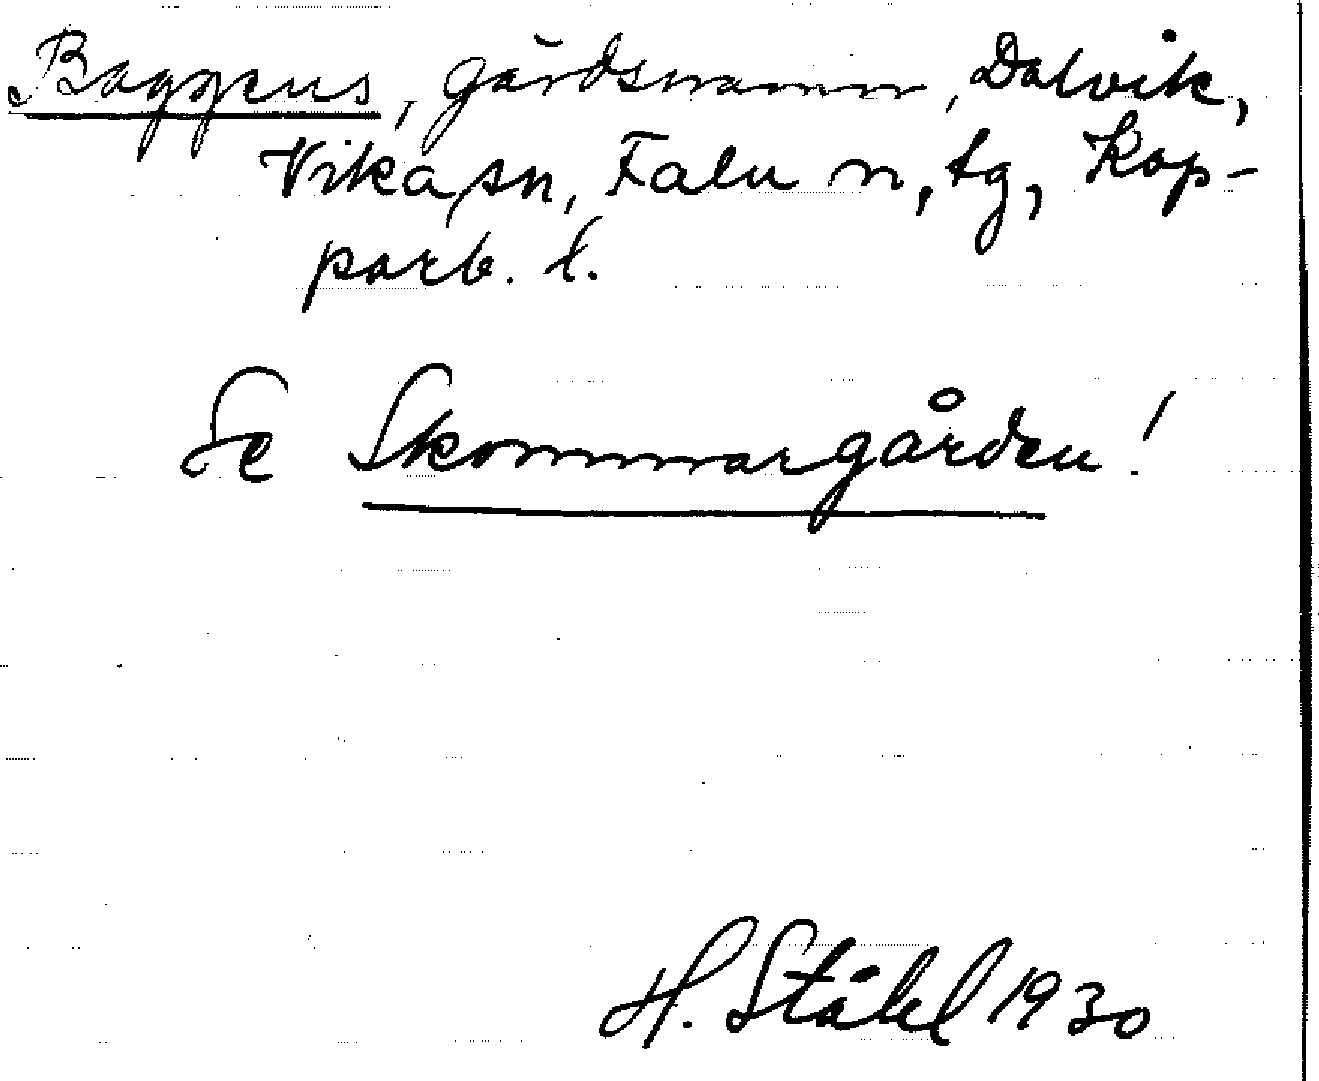 Baggens, gårdsnamn, Dalvik,
Vika sn, Falu n, tg, Kop-
parb. l.
Se Skommargården!
H. Ståhl 1930